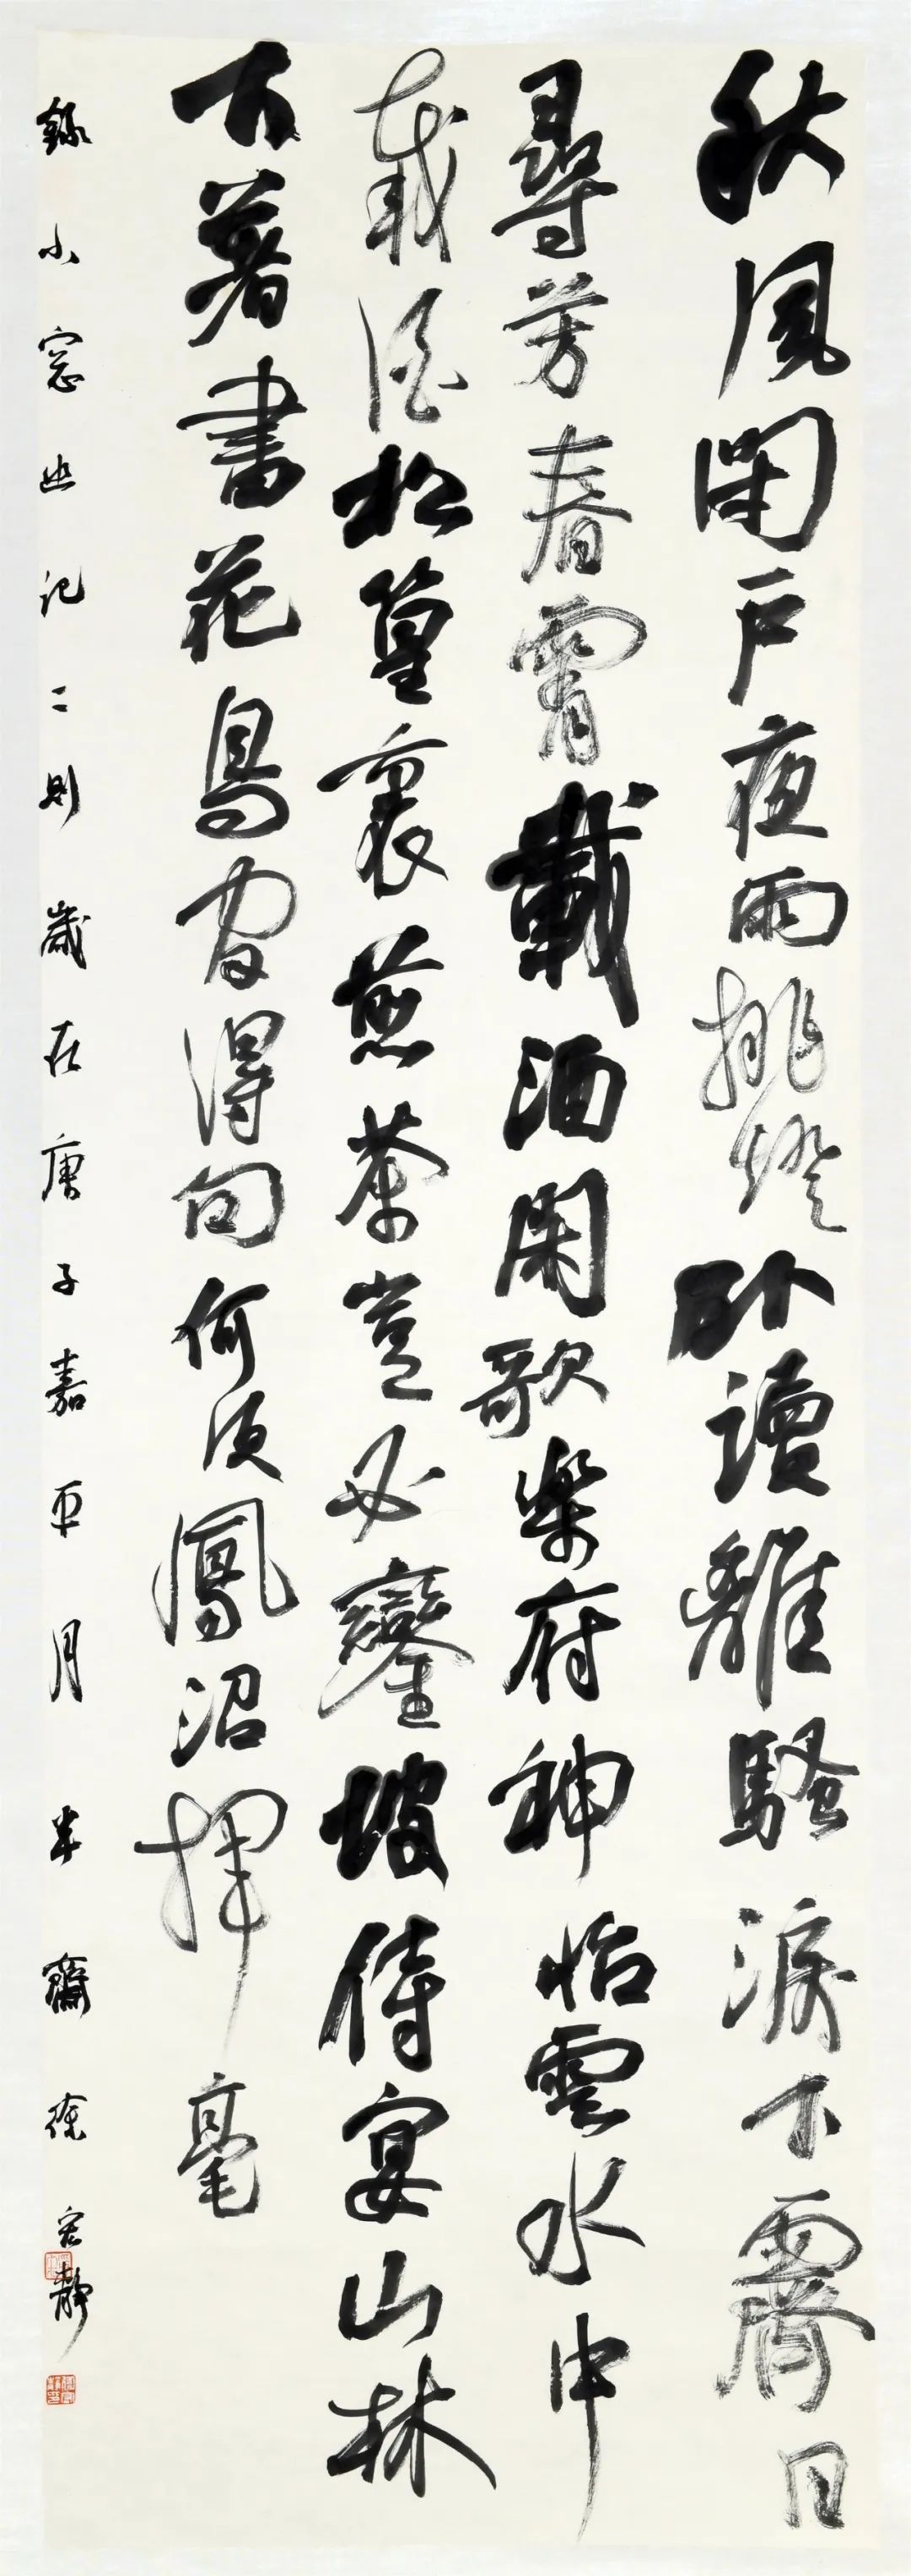 秋風閉戶夜雨挑燈卧讀離騷淚下霽日
尋芳春霄載酒閑歌樂府神怡雲水中
載酒松篁裏煎茶豈必鑾坡侍宴山林
下著書花鳥間得句何須鳳沼揮毫
錄小窓幽記二則歲在庚子嘉平月半齋徐宏靜